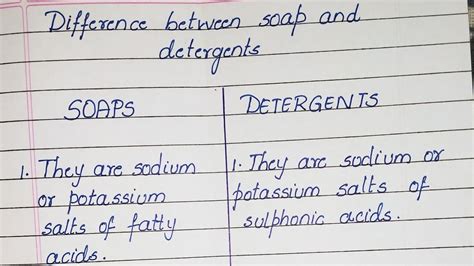 Difference between soap and
detergents
SOAPS
1. They are sodium
or potassium
salts of fatty
acids.
DETERGENTS
1. They are sodium or
potassium salts of
sulphonic acids.